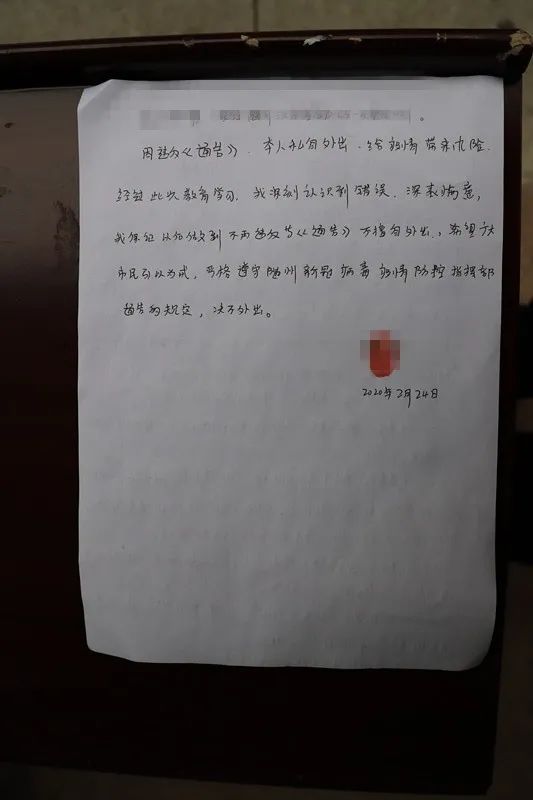 因违反《通告》. 本人私自外出. 给疫情带来危险.
经过此次教育学习. 我深刻认识到错误. 深表悔意,
我保证从仍做到不再违反《通告》不擅自外出., 希望广大
市民引以为戒, 严格遵守随州新冠病毒疫情防控指挥部
通告的规定, 决不外出。
2020年2月24日